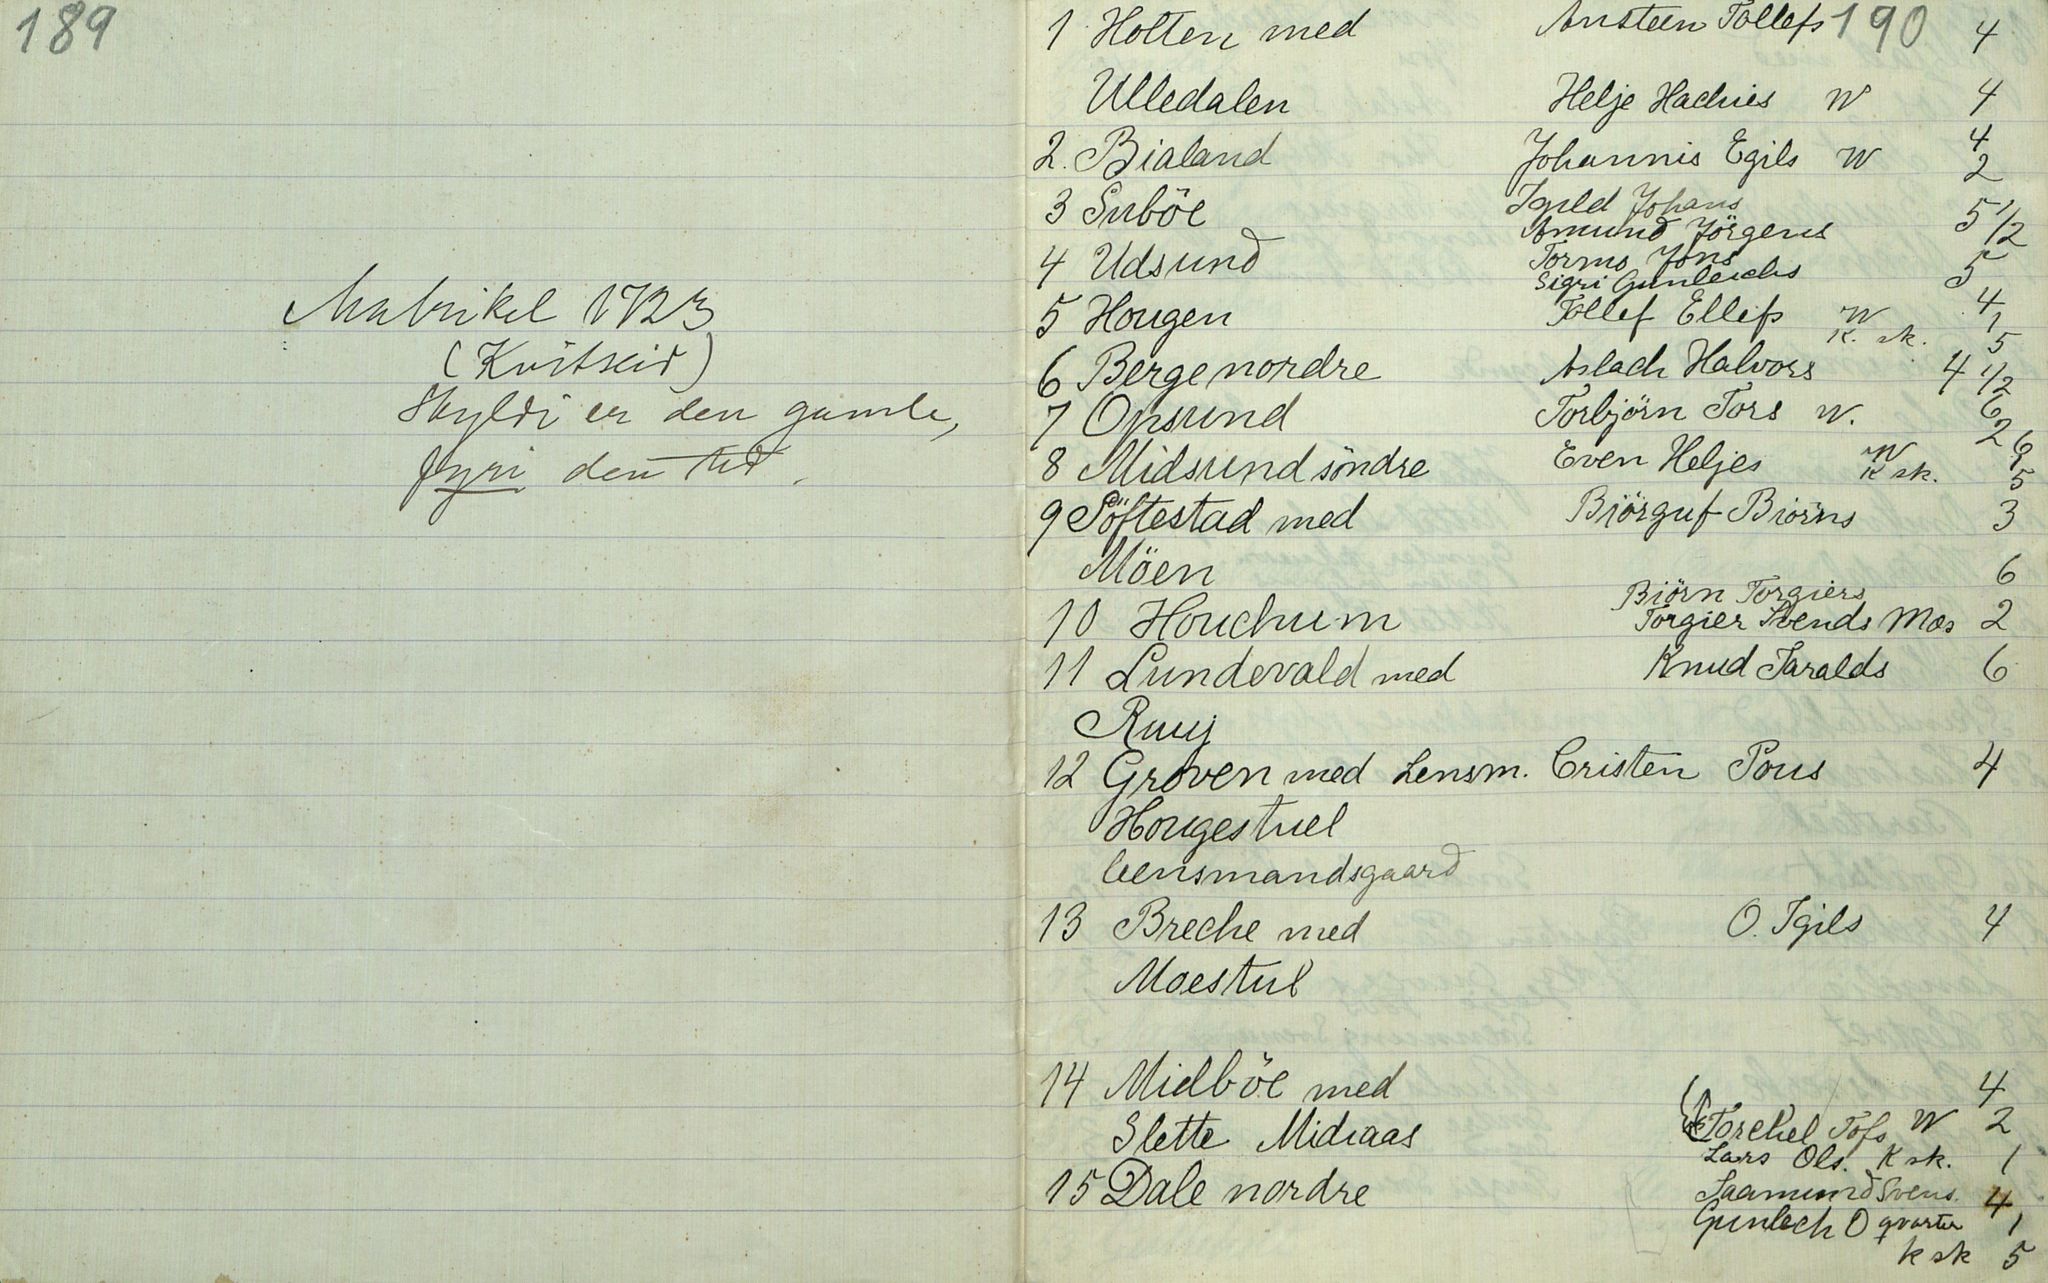 189
Matrikel 1723
(Kvitseid)
Skyldi er den gamle,
fyri den tid.
190
1 Holten med Ansteen Tollefs 4
Ulledalen Helje Hachies W 4
2. Bialand Johannis Egils W 4 2
3 Suböe Igild Johans
Amund Jörgens 5 1/2
4 Udsund Tormo Jons
Sigri Gunleichs 5
5 Hougen Tollef Ellefs W 4 1
K. sk. 5
6 Berge nordre Aslach Halvors 4 1/2
7 Opsund Torbjörn Tors W. 6 2
8 Midsund söndre Even Heljes W 6
K sk. 5
9 Söftestad med Biörguf Biörns 3
Möen 6
Biörn Torgiers
10 Houchum Torgier Svends Moe 2
11 Lundevald med Knud Taralds 6
Ruuj
12 Groven med Lensm. Cristen Pous 4
Hougestuel
leensmandsgaard
13 Breche med O. Igils 4
Moestul
14 Midböe med 4
Slette Midraas Torchel Tofs W 2
Lars Ols. K sk. 1
15 Dale nordre Saamund Svens. 4
Gunlech O qvarter 1
K sk 5